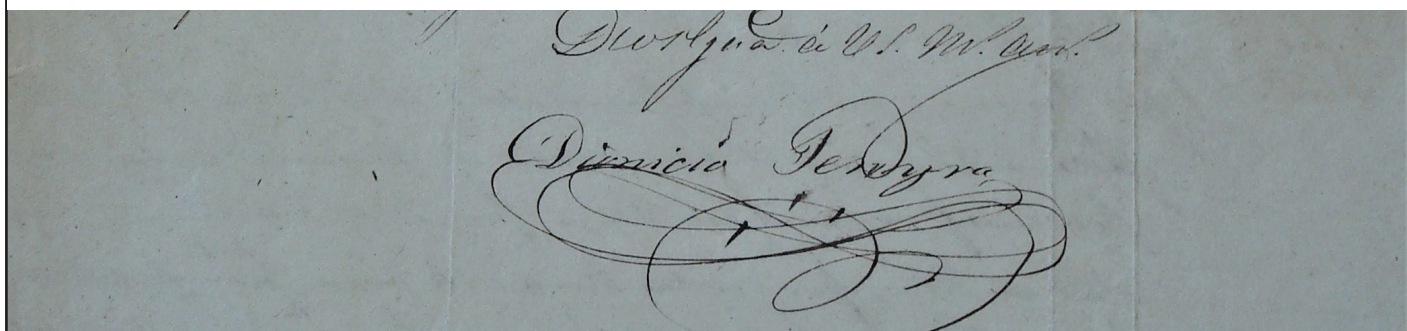 Dios Gue. á U.S. M.s an.s
Dionicio Pereyra